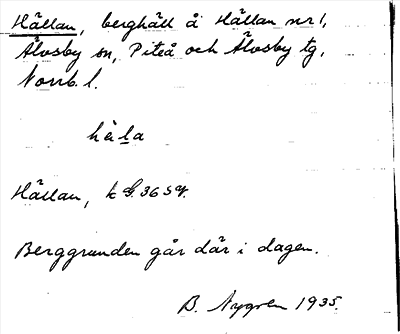 Hällan, berghäll å Hällan nr 1,
Älvsby sn, Piteå och Älvsby tg,
Norrb. l.
hèl̲a
Hällan, k G. 36 S 9.
Berggrunden går där i dagen.
B. Nygren 1935.